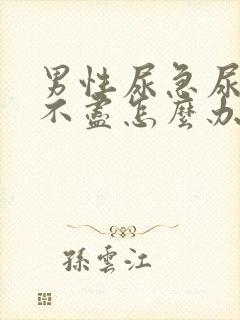 男性尿急尿
不盡怎麼办
孫雲江